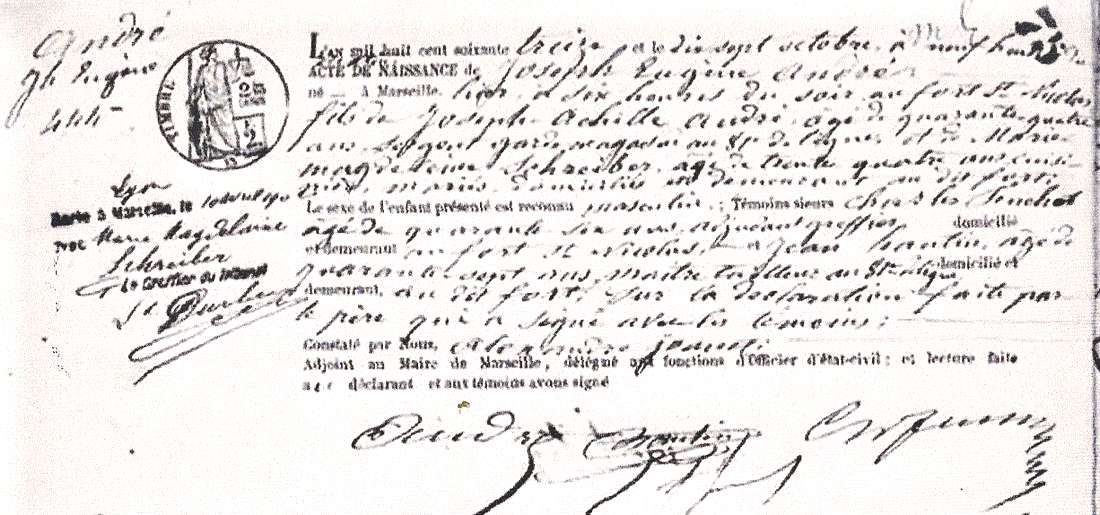 André
Jh Eugène
444
TIMBRE
L'AN mil huit cent soixante treize et le dix sept octobre, à neuf heures
ACTE DE NAISSANCE de Joseph Eugène André
né à Marseille, hier à six heures du soir au fort St Nicolas
fils de Joseph Achille André, âgé de quarante quatre
ans, Sergent garde magasin au de ligne, et de Marie
magdeleine Schreiber, âgée de trente quatre ans
mariés, domiciliés et demeurant au dit fort;
Le sexe de l'enfant présenté est reconnu masculin; Témoins sieurs Charles
âgé de quarante six ans, adjudant greffier domicilié
et demeurant au fort St Nicolas, et Jean Chantin, âgé de
quarante sept ans, maître tailleur au domicilié et
demeurant, au dit fort; Sur la déclaration faite par
le père qui a signé avec les témoins;
Constaté par Nous, Alexandre
Adjoint au Maire de Marseille, délégué aux fonctions d'Officier d'état-civil; et lecture faite
au déclarant et aux témoins avons signé
Marié à Marseille, le
avec Marie Magdeleine
Schreiber
Le Greffier du
André